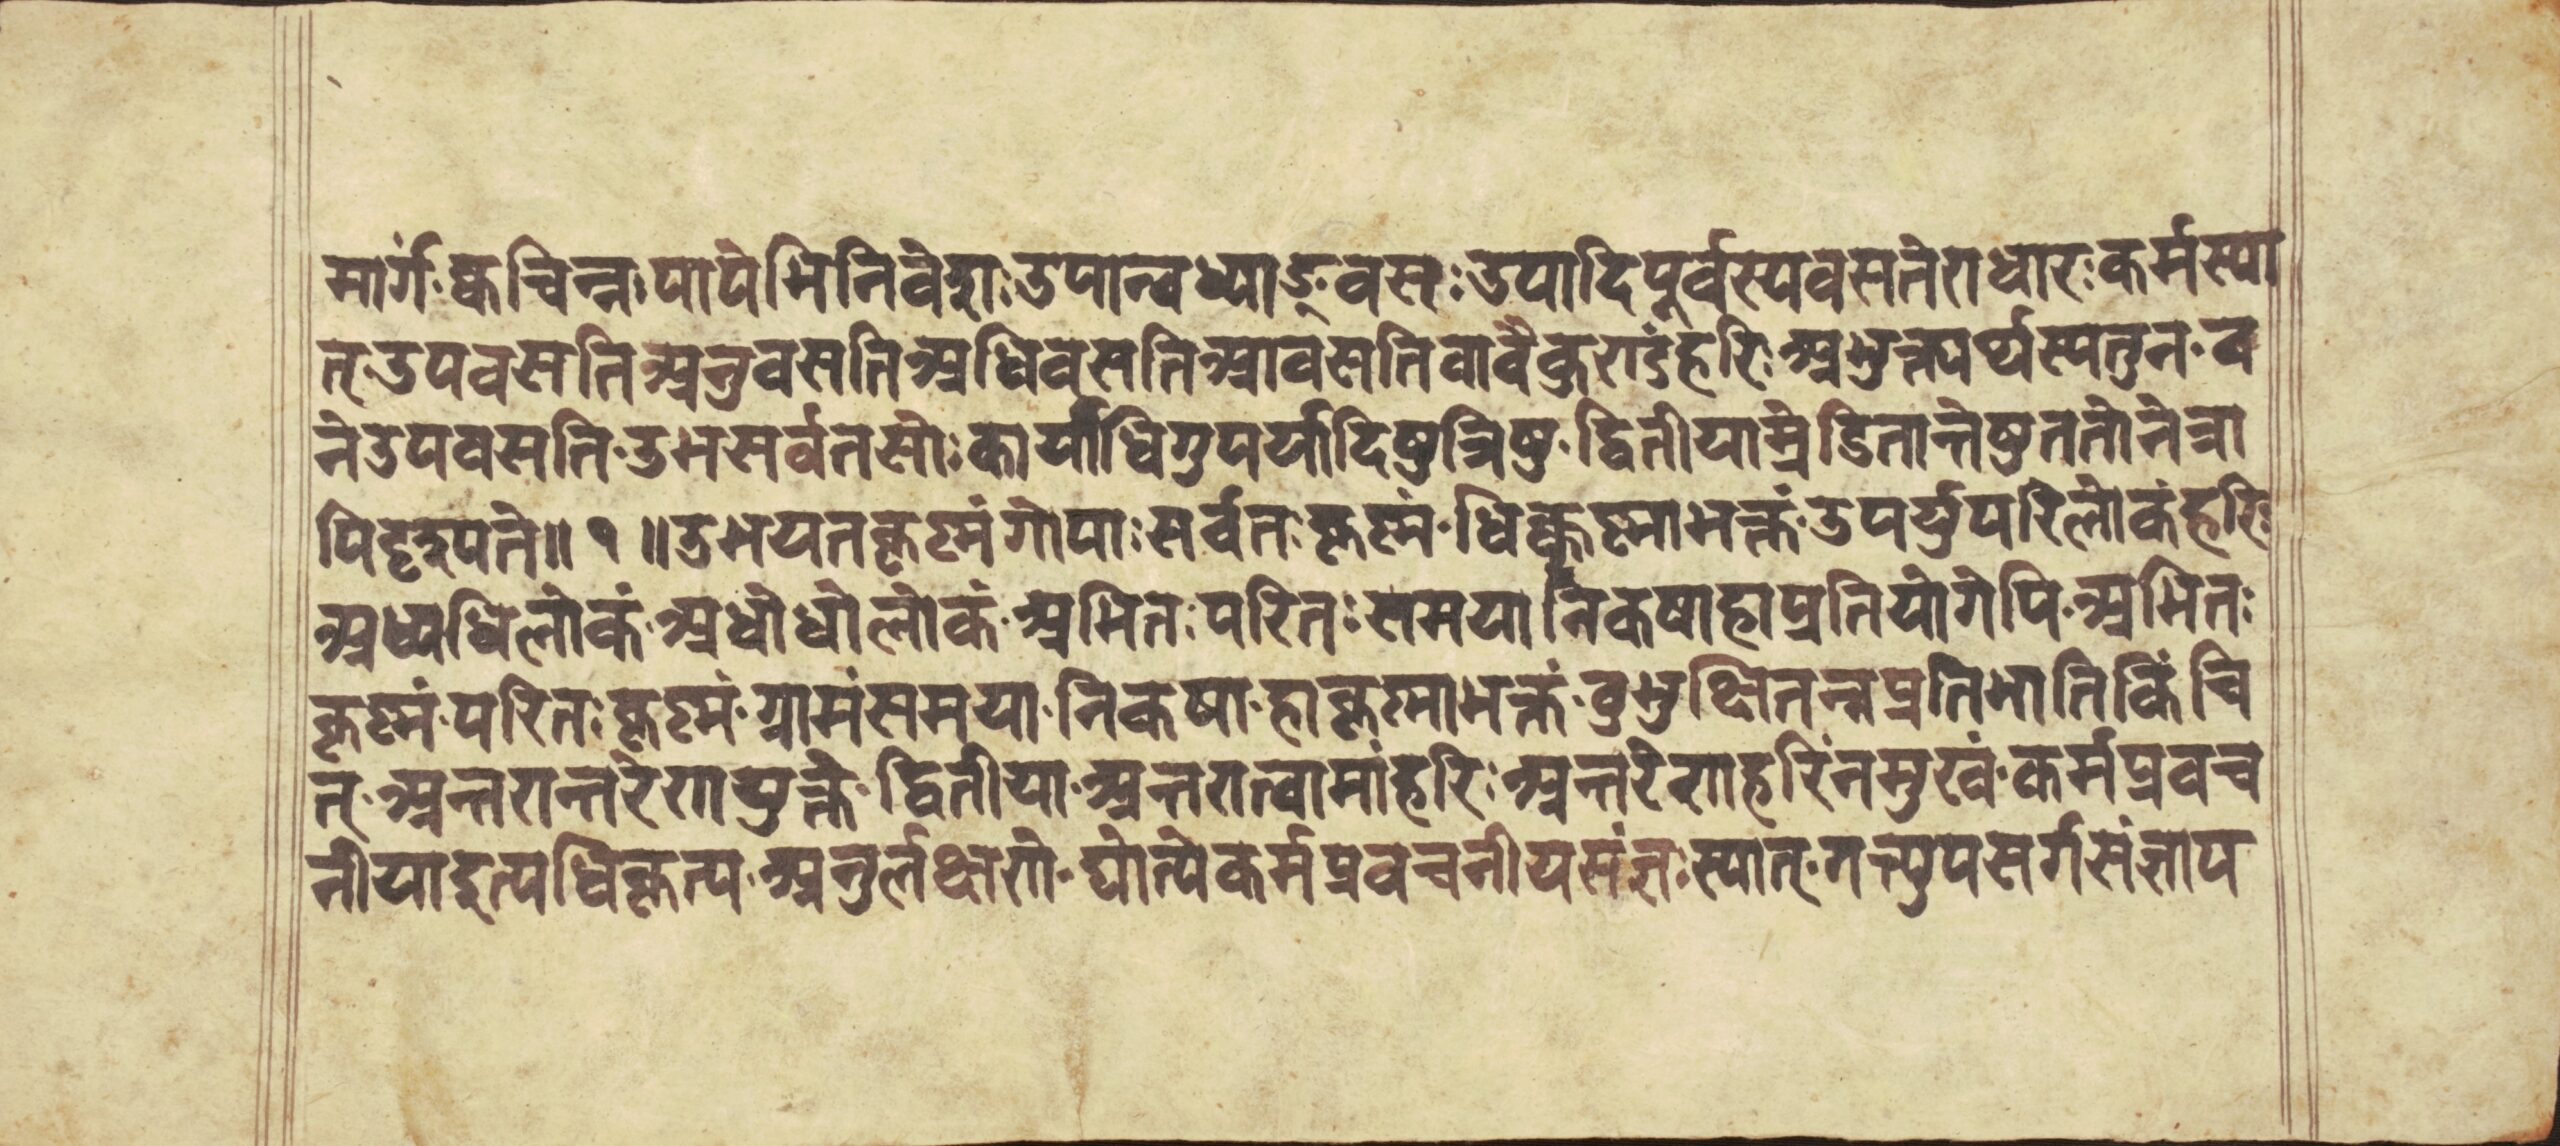 मार्गं·क्वचिन्नः पापेभिनिवेशः उपान्वध्याङ्वसः उपादिपूर्वस्यवसतेराधारः कर्मस्या
त्·उपवसतिअनुवसतिअधिवसतिआवसतिवावैकुराठंहरिः अभुक्त्यर्थस्यतुन·व
नेउपवसति·उभसर्वतसोः कार्याधिगुपर्यादिषुत्रिषु·द्वितीयाम्रेडितान्तेषुततोनेत्रा
पिदृश्यते॥१॥उभयतकृष्मंगोपाः सर्वतः कृष्मं·धिक्कृष्माभक्तं·उपर्युपरिलोकंहरिः
अध्यधिलोकं·अधोधोलोकं·अभितः परितः समयानिकषाहाप्रतियोगेपि·अभितः
कृष्मं·परितः कृष्मं·ग्रामंसमया·निकषा·हाकृष्माभक्तं·वुभुक्षितन्नप्रतिभातिकिंचि
त्·अन्तरान्तरेरायुक्ते·द्वितीया·अन्तरात्वामांहरिः अन्तरेराहरिंनमुखं·कर्मप्रवच
नीयाइत्यधिकृत्य·अनुर्लक्षरो·द्योत्येकर्मप्रवचनीयसंज्ञः स्यात्·गत्युपसर्गसंज्ञाप